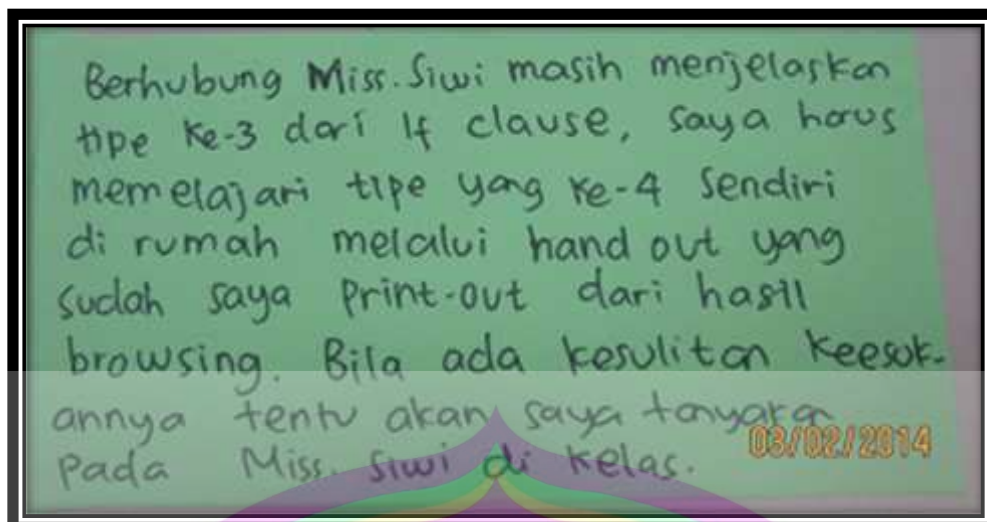 Berhubung Miss. Siwi masih menjelaskan
tipe ke-3 dari If clause, saya harus
memelajari tipe yang ke-4 sendiri
di rumah melalui hand out yang
sudah saya Print-out dari hasil
browsing. Bila ada kesulitan keesok-
annya tentu akan saya tanyakan
pada Miss. Siwi di kelas.
03/02/2014